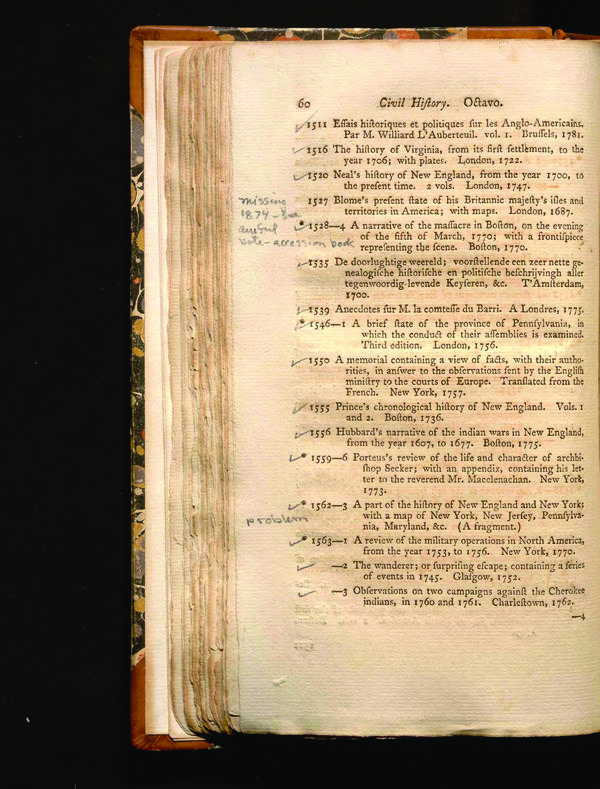 60 Civil Hiſtory. Octavo.
1511 Eſſais hiſtoriques et politiques ſur les Anglo-Americains.
Par M. Williard L'Auberteuil. vol. 1. Bruſſels, 1781.
1516 The hiſtory of Virginia, from its firſt ſettlement, to the
year 1706; with plates. London, 1722.
1520 Neal's hiſtory of New England, from the year 1700, to
the preſent time. 2 vols. London, 1747.
missing
1874-
1527 Blome's preſent ſtate of his Britannic majeſty's iſles and
territories in America; with maps. London, 1687.
note-accession book
*1528—4 A narrative of the maſſacre in Boſton, on the evening
of the fifth of March, 1770; with a frontiſpiece
repreſenting the ſcene. Boſton, 1770.
1535 De doorlughtige weereld; voorſtellende een zeer nette ge-
nealogiſche hiſtoriſche en politiſche beſchrijvingh aller
tegenwoordig-levende Keyſeren, &c. T'Amſterdam,
1700.
1539 Anecdotes ſur M. la comteſſe du Barri. A Londres, 1775.
*1546—1 A brief ſtate of the province of Pennſylvania, in
which the conduct of their aſſemblies is examined.
Third edition. London, 1756.
1550 A memorial containing a view of facts, with their autho-
rities, in anſwer to the obſervations ſent by the Engliſh
miniſtry to the courts of Europe. Tranſlated from the
French. New York, 1757.
1555 Prince's chronological hiſtory of New England. Vols. 1
and 2. Boſton, 1736.
1556 Hubbard's narrative of the indian wars in New England,
from the year 1607, to 1677. Boſton, 1775.
*1559—6 Porteus's review of the life and character of archbi-
ſhop Secker; with an appendix, containing his let-
ter to the reverend Mr. Macclenachan. New York,
1773.
*1562—3 A part of the hiſtory of New England and New York;
with a map of New York, New Jerſey, Pennſylva-
nia, Maryland, &c. (A fragment.)
problem
*1563—1 A review of the military operations in North America,
from the year 1753, to 1756. New York, 1770.
—2 The wanderer; or ſurpriſing eſcape; containing a ſeries
of events in 1745. Glaſgow, 1752.
—3 Obſervations on two campaigns againſt the Cherokee
indians, in 1760 and 1761. Charleſtown, 1762.
—4